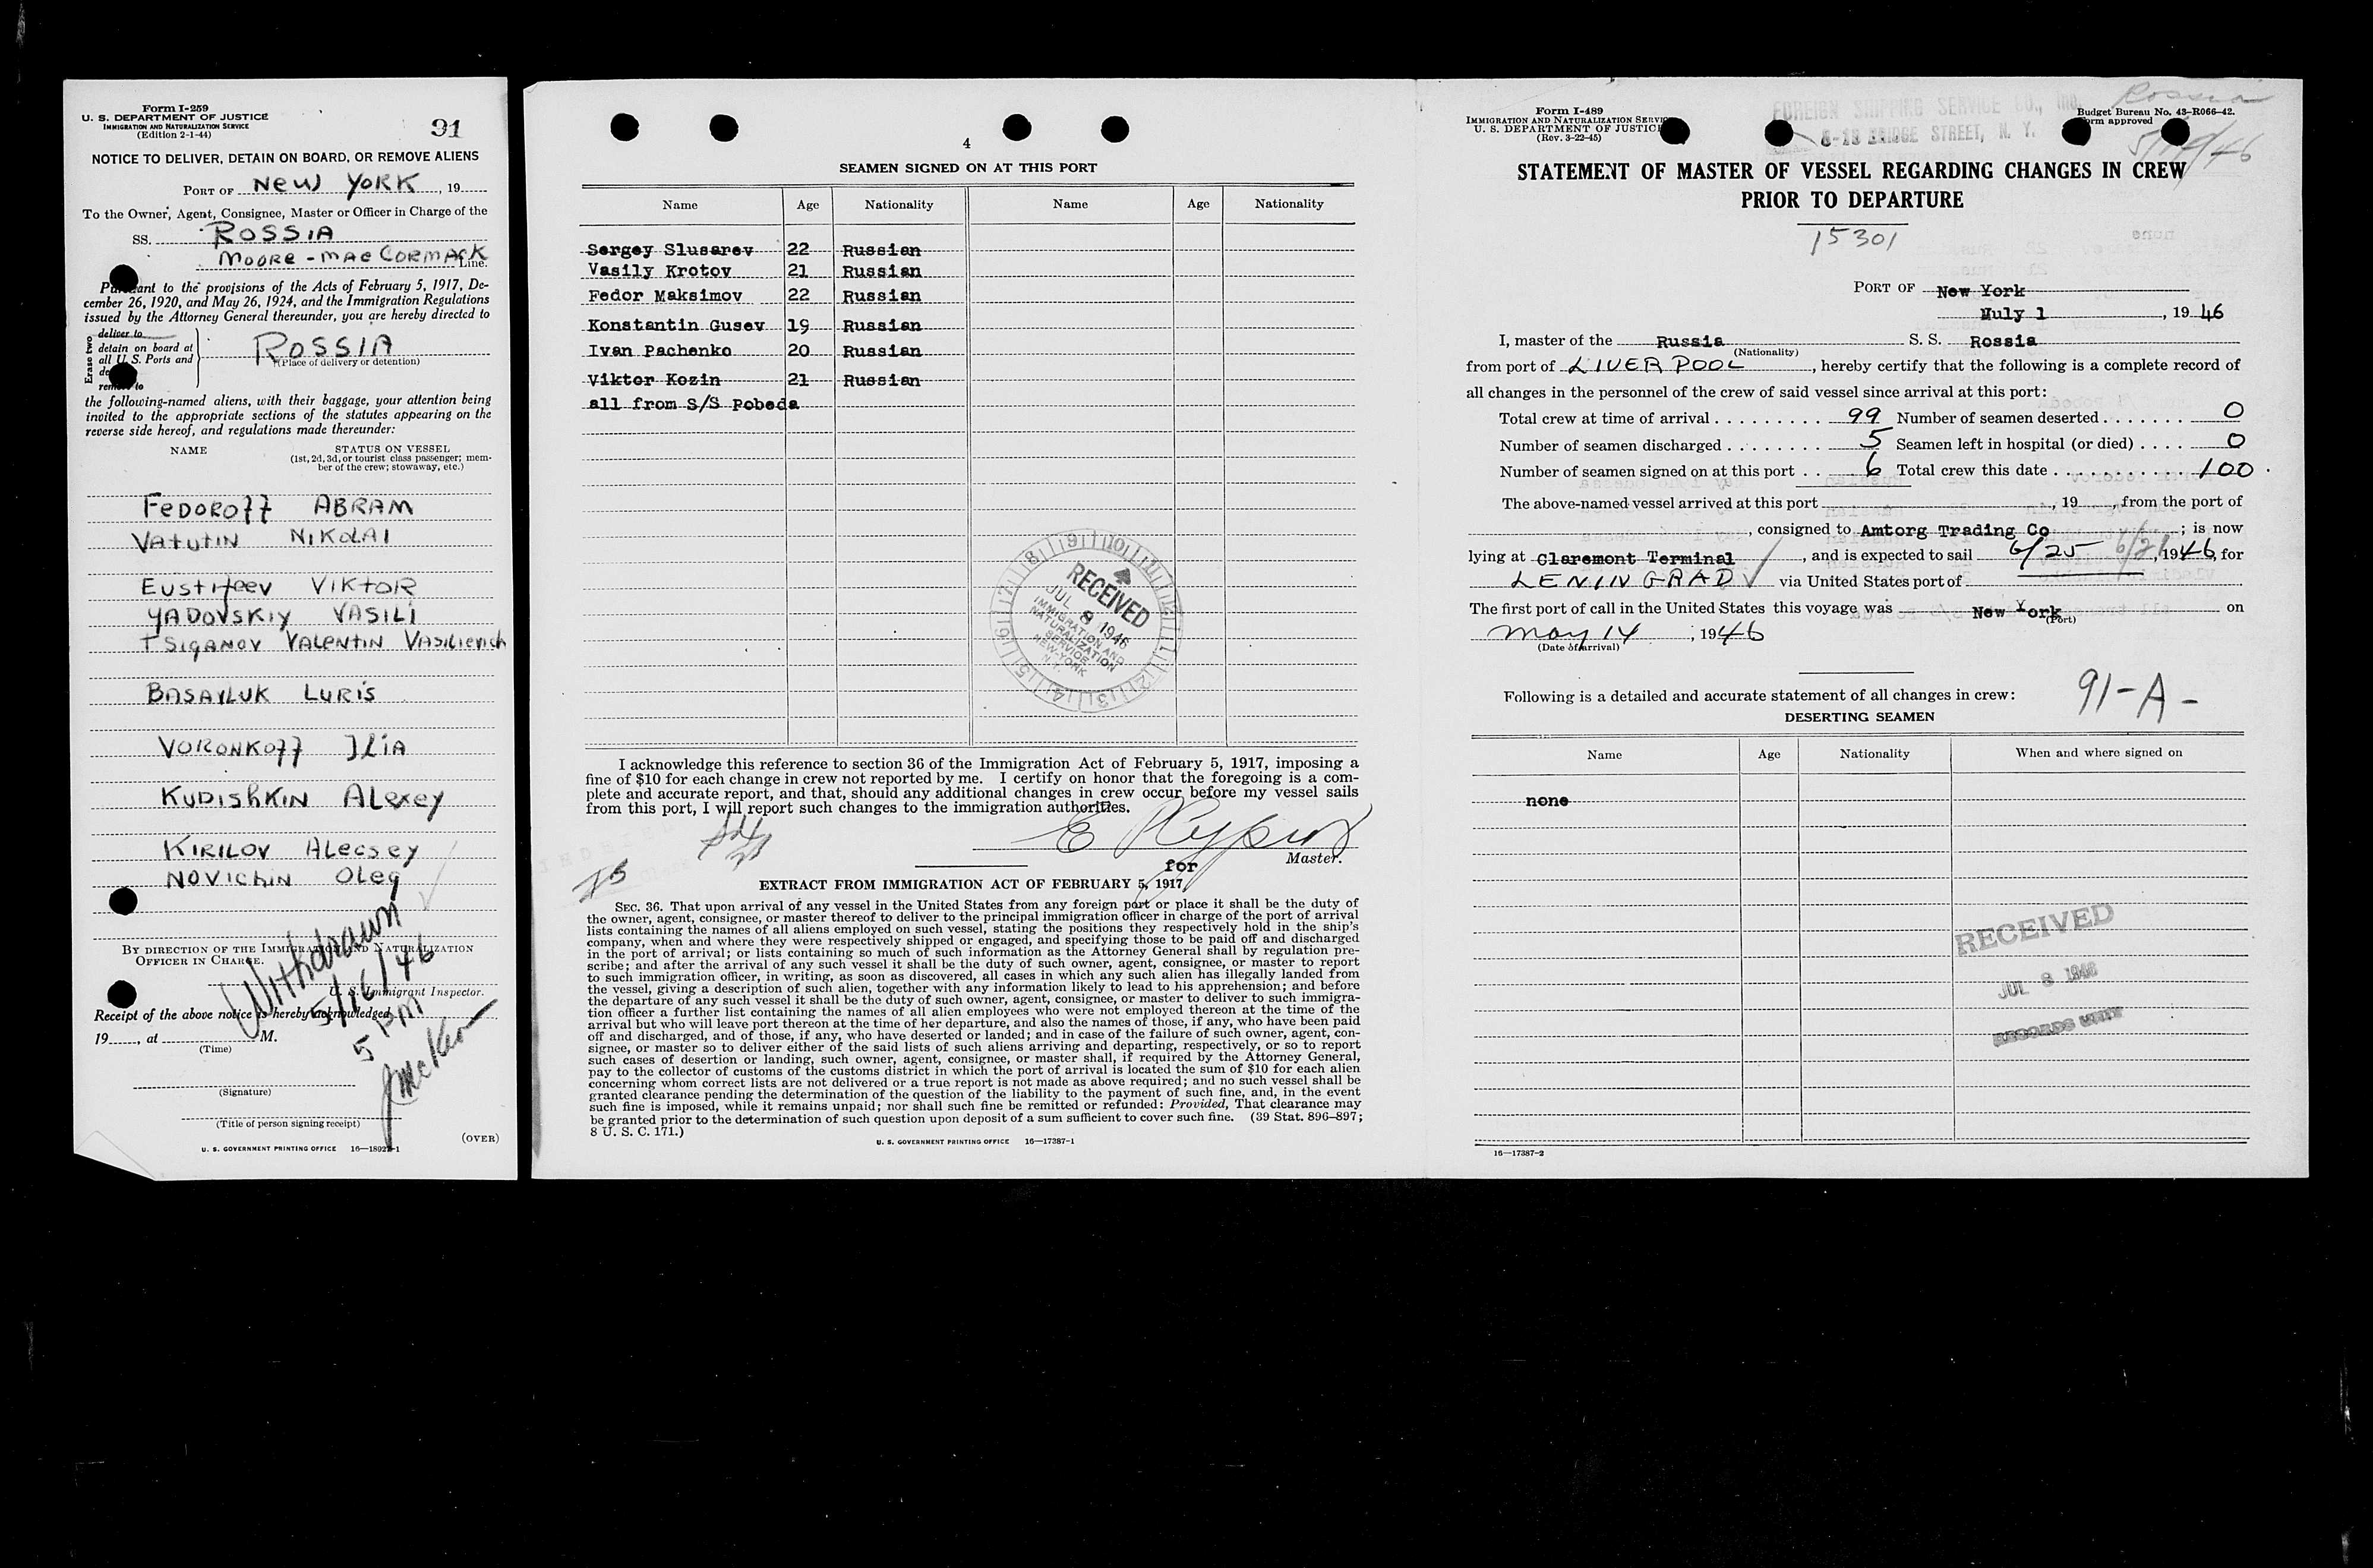 Form I-259
U. S. DEPARTMENT OF JUSTICE
IMMIGRATION AND NATURALIZATION SERVICE
(Edition 2-1-44)
91
NOTICE TO DELIVER, DETAIN ON BOARD, OR REMOVE ALIENS
PORT OF NEW YORK, 19
To the Owner, Agent, Consignee, Master or Officer in Charge of the
SS. ROSSIA
MOORE-MACCORMACK Line.
Pursuant to the provisions of the Acts of February 5, 1917, De-
cember 26, 1920, and May 26, 1924, and the Immigration Regulations
issued by the Attorney General thereunder, you are hereby directed to
Erase two
deliver to
detain on board at
all U. S. Ports and
remove to
ROSSIA
(Place of delivery or detention)
the following-named aliens, with their baggage, your attention being
invited to the appropriate sections of the statutes appearing on the
reverse side hereof, and regulations made thereunder:
NAME STATUS ON VESSEL
(1st, 2d, 3d, or tourist class passenger; mem-
ber of the crew; stowaway, etc.)
FEDOROFF ABRAM
VATUTIN NIKOLAI
EUSTIFEEV VIKTOR
YADOVSKIY VASILI
TSIGANOV VALENTIN VASILIEVICH
BASAYLUK LURIS
VORONKOFF ILIA
KUDISHKIN ALEXEY
KIRILOV ALECSEY
NOVICHIN OLEG
Withdrawn
5/16/46
5 PM
BY DIRECTION OF THE IMMIGRATION AND NATURALIZATION
OFFICER IN CHARGE.
U. S. Immigrant Inspector.
Receipt of the above notice is hereby acknowledged
19 , at M.
(Time)
(Signature)
(Title of person signing receipt)
(OVER)
U. S. GOVERNMENT PRINTING OFFICE
4
SEAMEN SIGNED ON AT THIS PORT
Name Age Nationality Name Age Nationality
Sergey Slusarev 22 Russian
Vasily Krotov 21 Russian
Fedor Maksimov 22 Russian
Konstantin Gusev 19 Russian
Ivan Pachenko 20 Russian
Viktor Kozin 21 Russian
all from S/S Pobeda
RECEIVED
JUL 8 1946
IMMIGRATION AND
NATURALIZATION
SERVICE
NEW-YORK
N.Y.
I acknowledge this reference to section 36 of the Immigration Act of February 5, 1917, imposing a
fine of $10 for each change in crew not reported by me. I certify on honor that the foregoing is a com-
plete and accurate report, and that, should any additional changes in crew occur before my vessel sails
from this port, I will report such changes to the immigration authorities.
for Master.
EXTRACT FROM IMMIGRATION ACT OF FEBRUARY 5, 1917
SEC. 36. That upon arrival of any vessel in the United States from any foreign port or place it shall be the duty of
the owner, agent, consignee, or master thereof to deliver to the principal immigration officer in charge of the port of arrival
lists containing the names of all aliens employed on such vessel, stating the positions they respectively hold in the ship's
company, when and where they were respectively shipped or engaged, and specifying those to be paid off and discharged
in the port of arrival; or lists containing so much of such information as the Attorney General shall by regulation pre-
scribe; and after the arrival of any such vessel it shall be the duty of such owner, agent, consignee, or master to report
to such immigration officer, in writing, as soon as discovered, all cases in which any such alien has illegally landed from
the vessel, giving a description of such alien, together with any information likely to lead to his apprehension; and before
the departure of any such vessel it shall be the duty of such owner, agent, consignee, or master to deliver to such immigra-
tion officer a further list containing the names of all alien employees who were not employed thereon at the time of the
arrival but who will leave port thereon at the time of her departure, and also the names of those, if any, who have been paid
off and discharged, and of those, if any, who have deserted or landed; and in case of the failure of such owner, agent, con-
signee, or master so to deliver either of the said lists of such aliens arriving and departing, respectively, or so to report
such cases of desertion or landing, such owner, agent, consignee, or master shall, if required by the Attorney General,
pay to the collector of customs of the customs district in which the port of arrival is located the sum of $10 for each alien
concerning whom correct lists are not delivered or a true report is not made as above required; and no such vessel shall be
granted clearance pending the determination of the question of the liability to the payment of such fine, and, in the event
such fine is imposed, while it remains unpaid; nor shall such fine be remitted or refunded: Provided, That clearance may
be granted prior to the determination of such question upon deposit of a sum sufficient to cover such fine. (39 Stat. 896-897;
8 U. S. C. 171.)
U. S. GOVERNMENT PRINTING OFFICE 16—17387-1
Form I-489
IMMIGRATION AND NATURALIZATION SERVICE
U. S. DEPARTMENT OF JUSTICE
(Rev. 3-22-45)
FOREIGN SHIPPING SERVICE CO., Inc.
BRIDGE STREET, N. Y.
Rossia
Budget Bureau No. 43-R066-42.
Form approved
STATEMENT OF MASTER OF VESSEL REGARDING CHANGES IN CREW
PRIOR TO DEPARTURE
15301
PORT OF New York
Muly 1, 1946
I, master of the Russia S. S. Rossia
(Nationality)
from port of LIVERPOOL, hereby certify that the following is a complete record of
all changes in the personnel of the crew of said vessel since arrival at this port:
Total crew at time of arrival 99 Number of seamen deserted 0
Number of seamen discharged 5 Seamen left in hospital (or died) 0
Number of seamen signed on at this port 6 Total crew this date 100
The above-named vessel arrived at this port , 19 , from the port of
, consigned to Amtorg Trading Co ; is now
lying at Claremont Terminal , and is expected to sail 6/25 1946, for
LENINGRAD via United States port of
The first port of call in the United States this voyage was New York on
(Port)
May 14, 1946
(Date of arrival)
Following is a detailed and accurate statement of all changes in crew: 91-A-
DESERTING SEAMEN
Name Age Nationality When and where signed on
none
RECEIVED
JUL 8 1946
RECORDS UNIT
16—17387-2